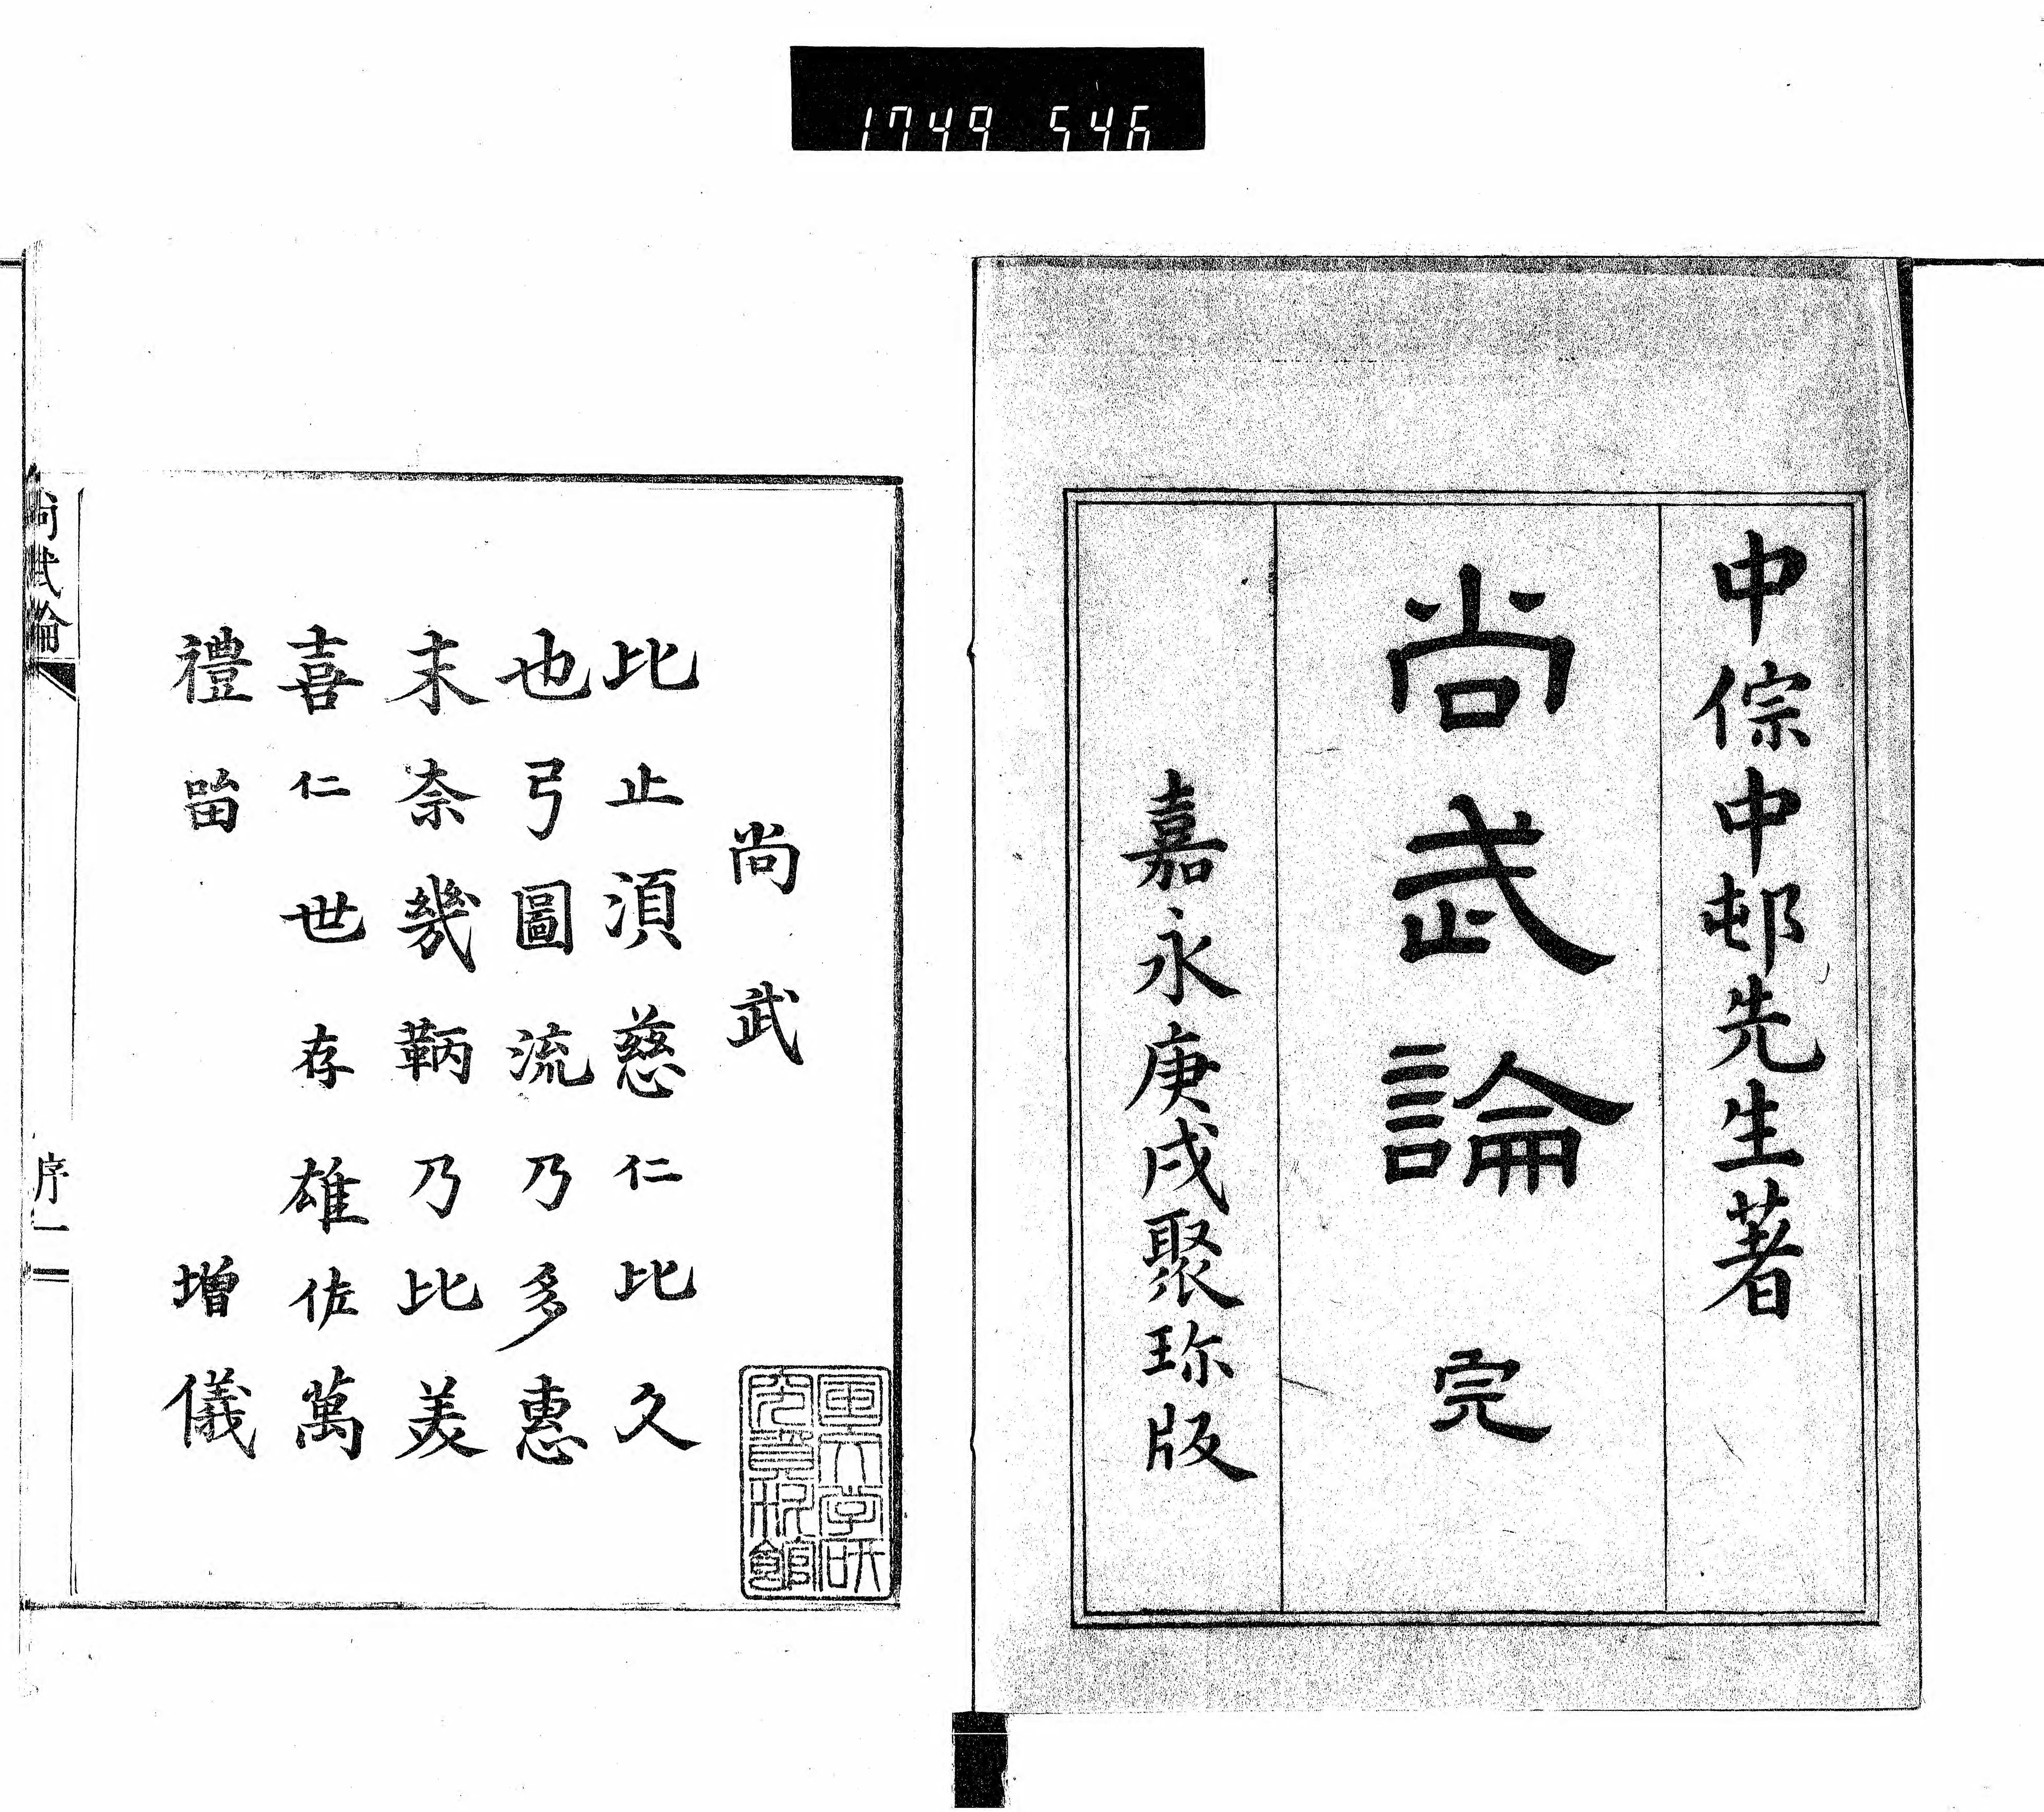 1749 546
中倧中邨先生著
尚武論 完
嘉永庚戌聚珎版
尚武
比止湏慈仁比久
也弓圖流乃多惠
末奈幾鞆乃比美
喜仁世存雄佐萬
禮㽞 增儀
国文学研
究資料館
尚武論 序一